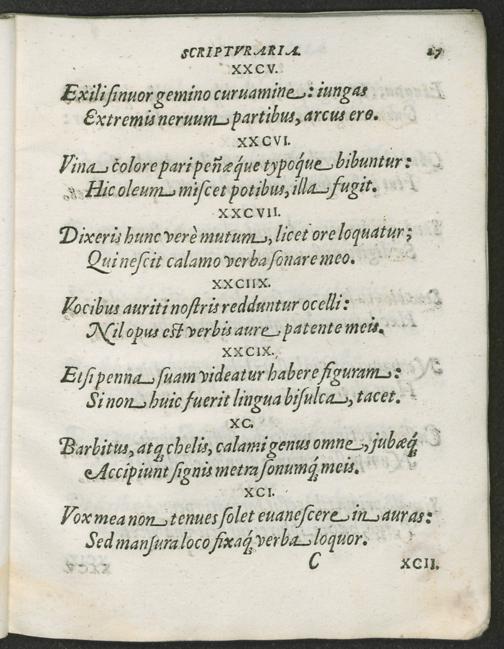 SCRIPTVRARIA. 27
XXCV.
Exili sinuor gemino curuamine: iungas
Extremis neruum partibus, arcus ero.
XXCVI.
Vina colore pari peñæq́ue typoq́ue bibuntur:
Hic oleum miscet potibus, illa fugit.
XXCVII.
Dixeris hunc verè mutum, licet ore loquatur;
Qui nescit calamo verba sonare meo.
XXCIIX.
Vocibus auriti nostris redduntur ocelli:
Nil opus est verbis aure patente meis.
XXCIX.
Etsi penna suam videatur habere figuram:
Si non huic fuerit lingua bisulca, tacet.
XC.
Barbitus, atq; chelis, calami genus omne, jubæq́;
Accipiunt signis metra sonumq́; meis.
XCI.
Vox mea non tenues solet evanescere in auras:
Sed mansura loco fixaq́; verba loquor.
C XCII.